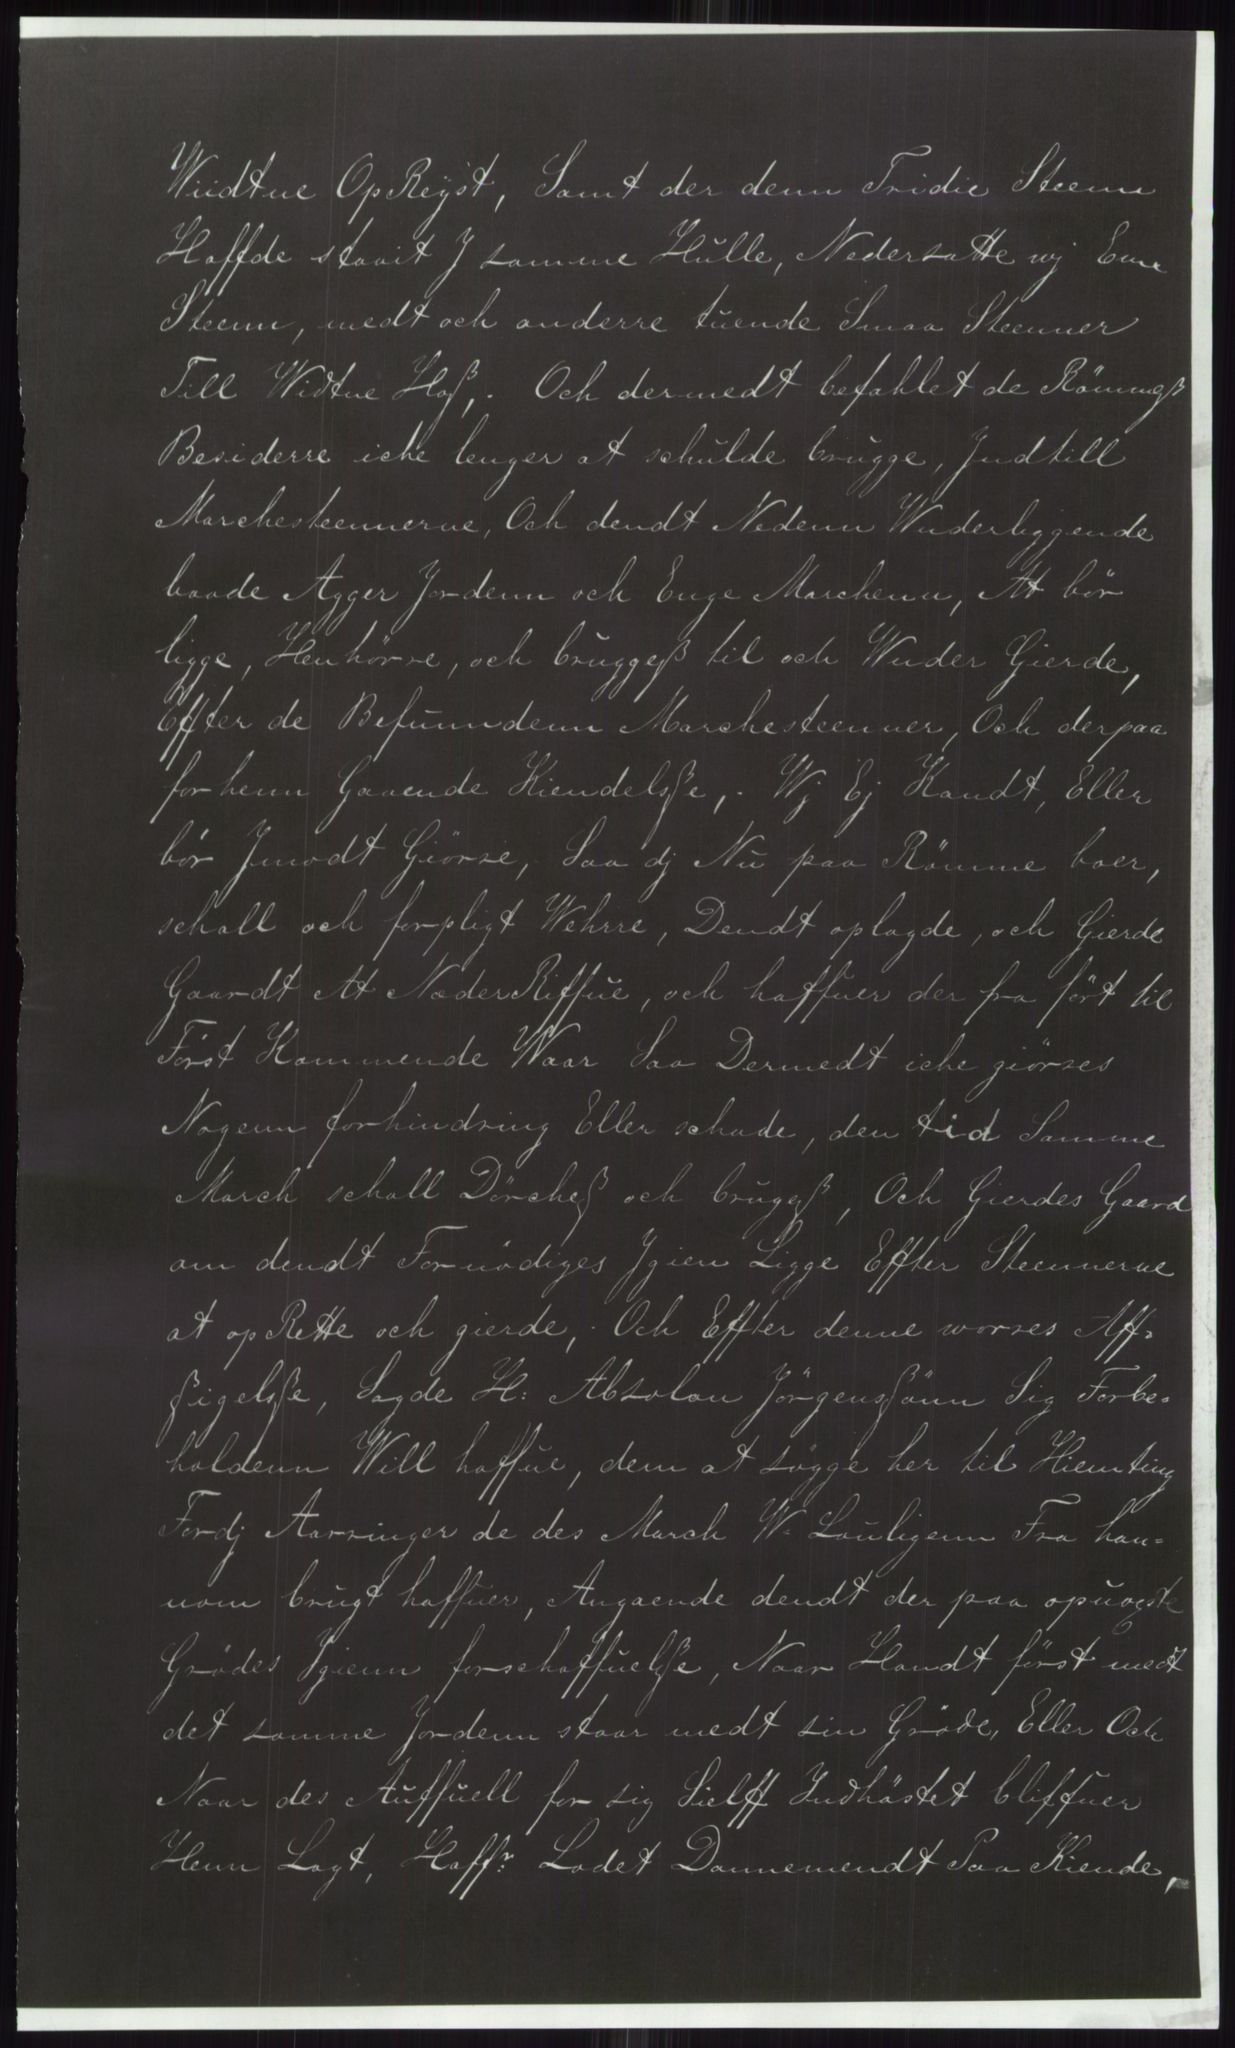 Wiidtne OpReÿst, Samt der denn Tridie Steenn
Haffde staait J samme Hŭlle, Nedersatte wj Enn
Steenn, medt och anderre tŭende Smaa Steenner
Till Widtne Hoß,. Och dermedt befahlet de Römmeß
Besiderre iche lenger at schŭlde brŭgge, Jndtill
Marchesteennerne, Och dendt Nedenn Wnderliggende
baade Agger Jordenn och Enge Marchenn, At bör
ligge, Henhörre, och brŭggeß til och Wnder Gierde,
Effter de Befŭnndenn Marchesteenner, Och derpaa
forhenn Gaaende Kiendelsße,. Wj Ej Kandt, Eller
bör Jmodt Giörre, Saa dj Nŭ paa Römme boer,
schall och forpligt Wehrre, Dendt oplagde, och Gierde
Gaardt At NederRiffue, och haffuer der fra fört til
Först Kommende Waar Saa Dermedt iche giörres
Nogenn forhindring Eller schade, den tid Samme
March schall Dörcheß och brŭgeß, Och Gierdes Gaard
om dendt Fornödiges Jgien Ligge Effter Steennerne
at opRette och gierde,. Och Effter denne worres Aff=
ßigelsße, Sagde H: Absolon Jörgensßönn Sig Forbe=
holdenn Will haffue, dem at sögge her til Hiemting
Fordj Aarringer de des March W= Louligenn Fra han=
nom brŭgt haffuer, Angaende dendt der paa opuogste
Grödes Jgienn forschaffuelsße, Naar Handt först medt
det samme Jordenn staar medt sin Gröde, Eller Och
Naar des Auffuell for sig Sielff Jndhöstet bliffuer
Henn Lagt, Haffr. Ladet Dannemendt Paa Kiende,